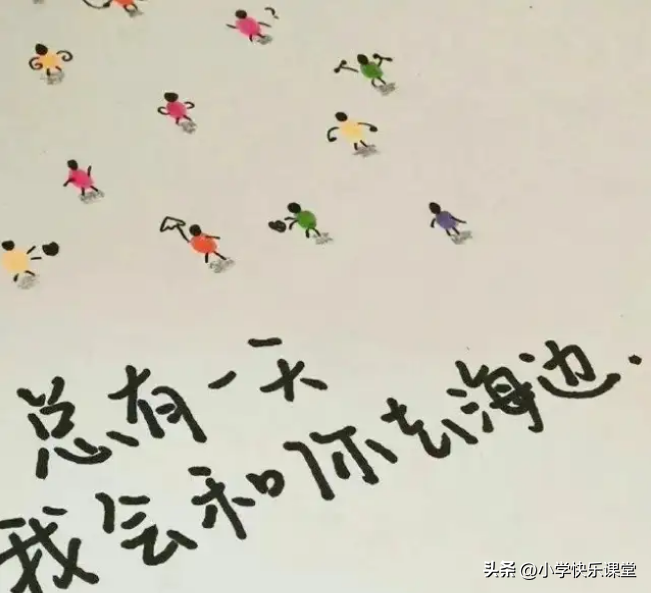 总有一天
我会和你去海边.
头条 @小学快乐课堂